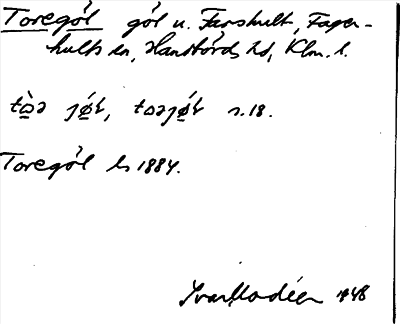 Toregöl göl u. Farshult, Fager-
hults sn, Handbörds hd, Klm. l.
tɷ̀ə jǿɫ, tɷəjǿɫ s. 18.
Toregöl ls 1884.
Ivar Modéer 1948